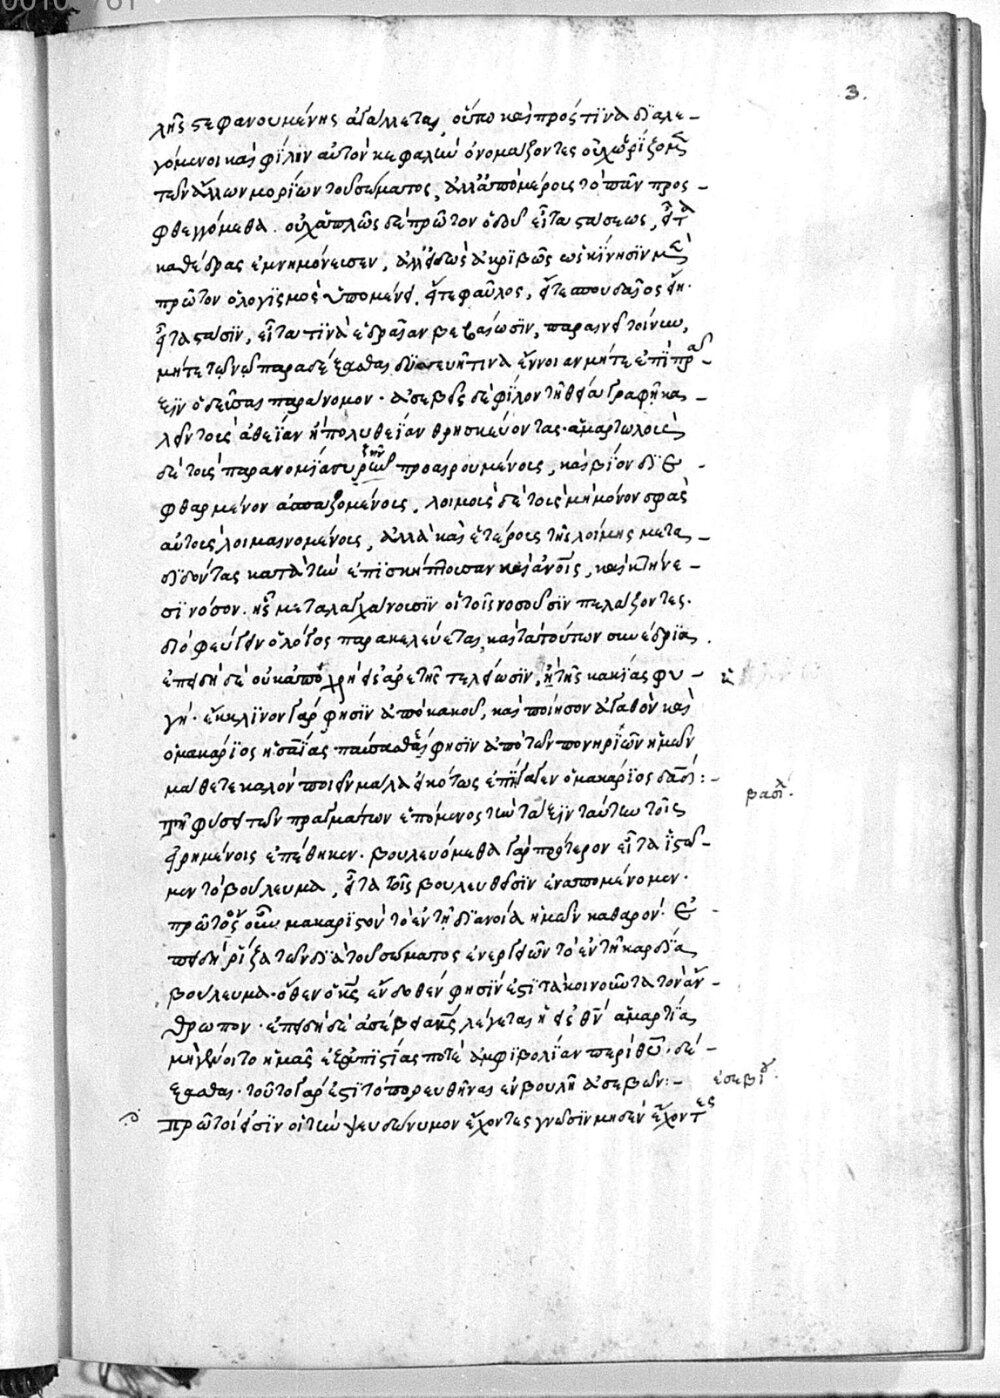 3.
λῆς στεφανουμένης ἀγάλλεται, οὕτω καὶ πρός τινα διαλε-
γόμενοι καὶ φίλην αὐτὸν κεφαλὴν ὀνομάζοντες οὐ χωρίζομεν
τῶν ἄλλων μορίων τοῦ σώματος, ἀλλ' ἀπὸ μέρους τὸ πᾶν προσ-
φθεγγόμεθα. οὐχ ἁπλῶς δὲ πρῶτον ὁδοῦ εἶτα στάσεως, εἶτα
καθέδρας ἐμνημόνευσεν, ἀλλ' εἰδὼς ἀκριβῶς ὡς κίνησιν μὲν
πρῶτον ὁ λογισμὸς ὑπομένει, εἴτε φαῦλος, εἴτε σπουδαῖος εἴη.
εἶτα στάσιν, εἶτά τινα ἑδραίαν βεβαίωσιν, παραινεῖ τοίνυν,
μήτε τῷ νῷ παραδέξασθαι δυσσεβῆ τινα ἔννοιαν μήτε ἐπὶ πρᾶ-
ξιν ὁδεῦσαι παράνομον. ἀσεβεῖς δὲ φίλον τῇ θείᾳ γραφῇ κα-
λεῖν τοὺς ἀθεΐαν ἢ πολυθεΐαν θρησκεύοντας. ἁμαρτωλοὺς
δὲ τοὺς παρανομίᾳ συζῆν προαιρουμένους, καὶ βίον διε-
φθαρμένον ἀσπαζομένους, λοιμοὺς δὲ τοὺς μὴ μόνον σφᾶς
αὐτοὺς λοιμαινομένους, ἀλλὰ καὶ ἑτέροις τῆς λοίμης μετα-
διδόντας κατὰ τὴν ἐπισκήπτουσαν καὶ ἀνοις, καὶ κτήνε-
σι νόσον. ἧς μεταλαγχάνουσιν οἱ τοῖς νοσοῦσιν πελάζοντες.
διὸ φεύγειν ὁ λόγος παρακελεύεται, καὶ τὰ τούτων συνέδρια.
ἐπειδὴ δὲ οὐκ ἀπόχρη εἰς ἀρετῆς τελείωσιν, ἡ τῆς κακίας φυ-
γή. ἔκκλινον γάρ φησιν ἀπὸ κακοῦ, καὶ ποίησον ἀγαθὸν καὶ
ὁ μακάριος ἡσαΐας παύσασθέ φησιν ἀπὸ τῶν πονηριῶν ὑμῶν
μάθετε καλὸν ποιεῖν μάλα εἰκότως ἐπήγαγεν ὁ μακάριος δαδ:-
τῇ φύσει τῶν πραγμάτων ἑπόμενος τὴν τάξιν ταύτην τοῖς
βασιλ.
εἰρημένοις ἐπέθηκεν. βουλευόμεθα γὰρ πρότερον εἶτα ἱστῶ-
μεν τὸ βούλευμα, εἶτα τοῖς βουλευθεῖσιν ἐναπομένομεν.
πρῶτον οὖν μακαριστὸν τὸ ἐν τῇ διανοίᾳ ἡμῶν καθαρὸν. ἐ-
πειδὴ ῥίζα τῶν διὰ τοῦ σώματος ἐνεργειῶν τὸ ἐν τῇ καρδίᾳ
βούλευμα. ὅθεν ὁ κς ἔνδοθέν φησιν ἐστὶ τὰ κοινοῦντα τὸν ἄν-
θρωπον. ἐπειδὴ δὲ ἀσέβεια κς λέγεται ἡ εἰς θν ἁμαρτία,
μὴ γένοιτο ἡμᾶς ἐξ ἀπιστίας ποτὲ ἀμφιβολίαν περὶ θυ δέ-
ξασθαι. τοῦτο γάρ ἐστι τὸ πορευθῆναι ἐν βουλῇ ἀσεβῶν:-
εὐσεβίου.
πρῶτοί εἰσιν οἱ τὴν ψευδώνυμον ἔχοντες γνῶσιν μηδὲν ἔχοντες